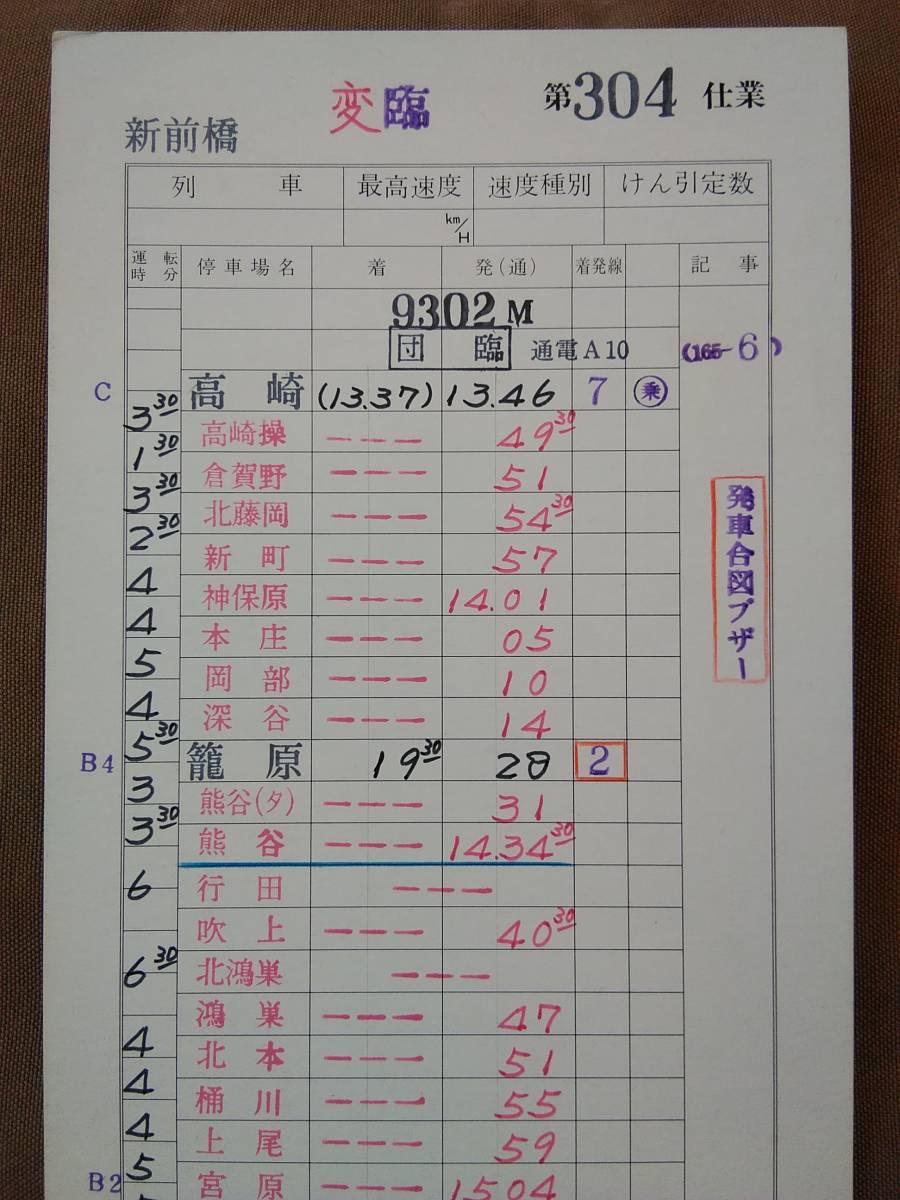 変臨
第304仕業
新前橋
列車 最高速度 速度種別 けん引定数
km/H
運転時分 停車場名 着 発(通) 着発線 記事
9302M
団臨 通電A10 (165-6)
C 高崎 (13.37) 13.46 7 乗
3 30
高崎操 --- 49 30
1 30
倉賀野 --- 51
3 30
北藤岡 --- 54 30
2 30
新町 --- 57
4
神保原 --- 14.01
4
本庄 --- 05
5
岡部 --- 10
4
深谷 --- 14
5 30
B4 籠原 19 30 28 2
3
熊谷(タ) --- 31
3 30
熊谷 --- 14.34 30
行田 ---
6
吹上 --- 40 30
北鴻巣 ---
6 30
鴻巣 --- 47
4
北本 --- 51
4
桶川 --- 55
4
上尾 --- 59
5
B2 宮原 --- 15.04
発車合図ブザー